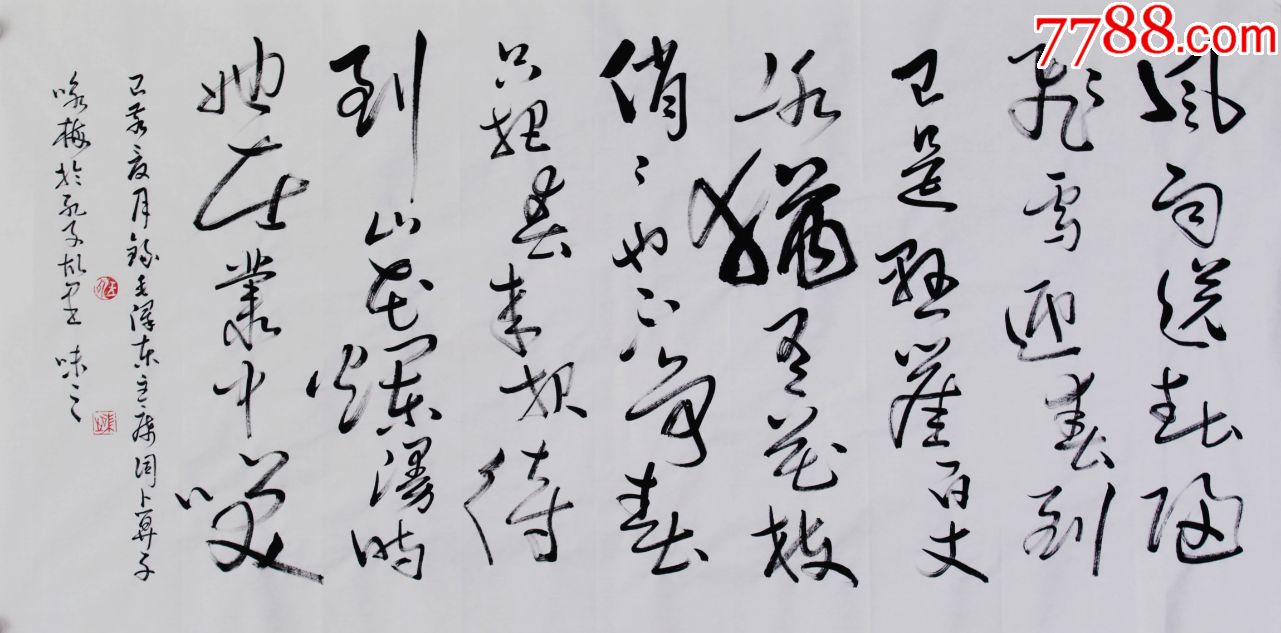 7788.com
風雨送春歸
飛雪迎春到
已是懸崖百丈
冰猶有花枝
俏〻也不爭春
只把春來報待
到山花爛漫時
她在叢中笑
己亥夏月錄毛澤東主席詞卜算子
咏梅於孔子故里 味之